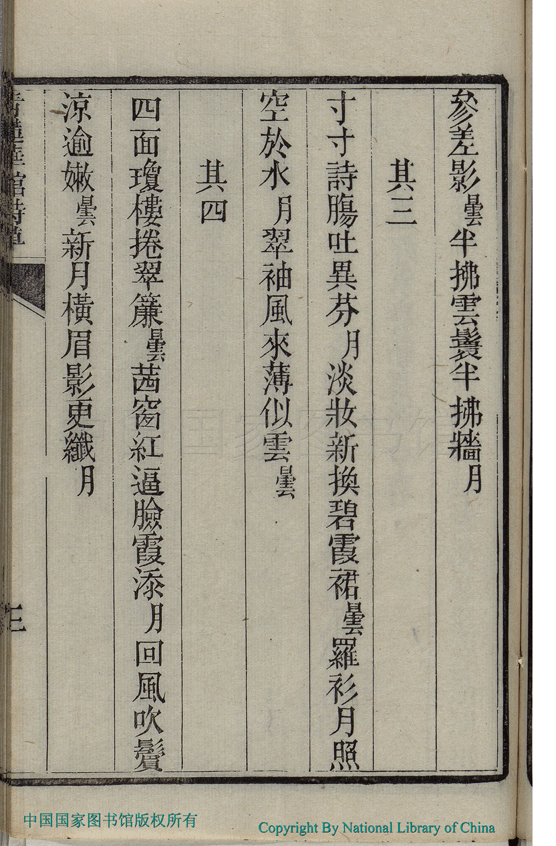 參差影曇半拂雲鬟半拂牆月
其三
寸寸詩腸吐異芬月淡妝新換碧霞裙曇羅衫月照
空於水月翠袖風來薄似雲曇
其四
四面瓊樓捲翠簾曇茜窗紅逼臉霞添月回風吹鬢
涼逾嫩曇新月橫眉影更纖月
三
中国国家图书馆版权所有
Copyright By National Library of China